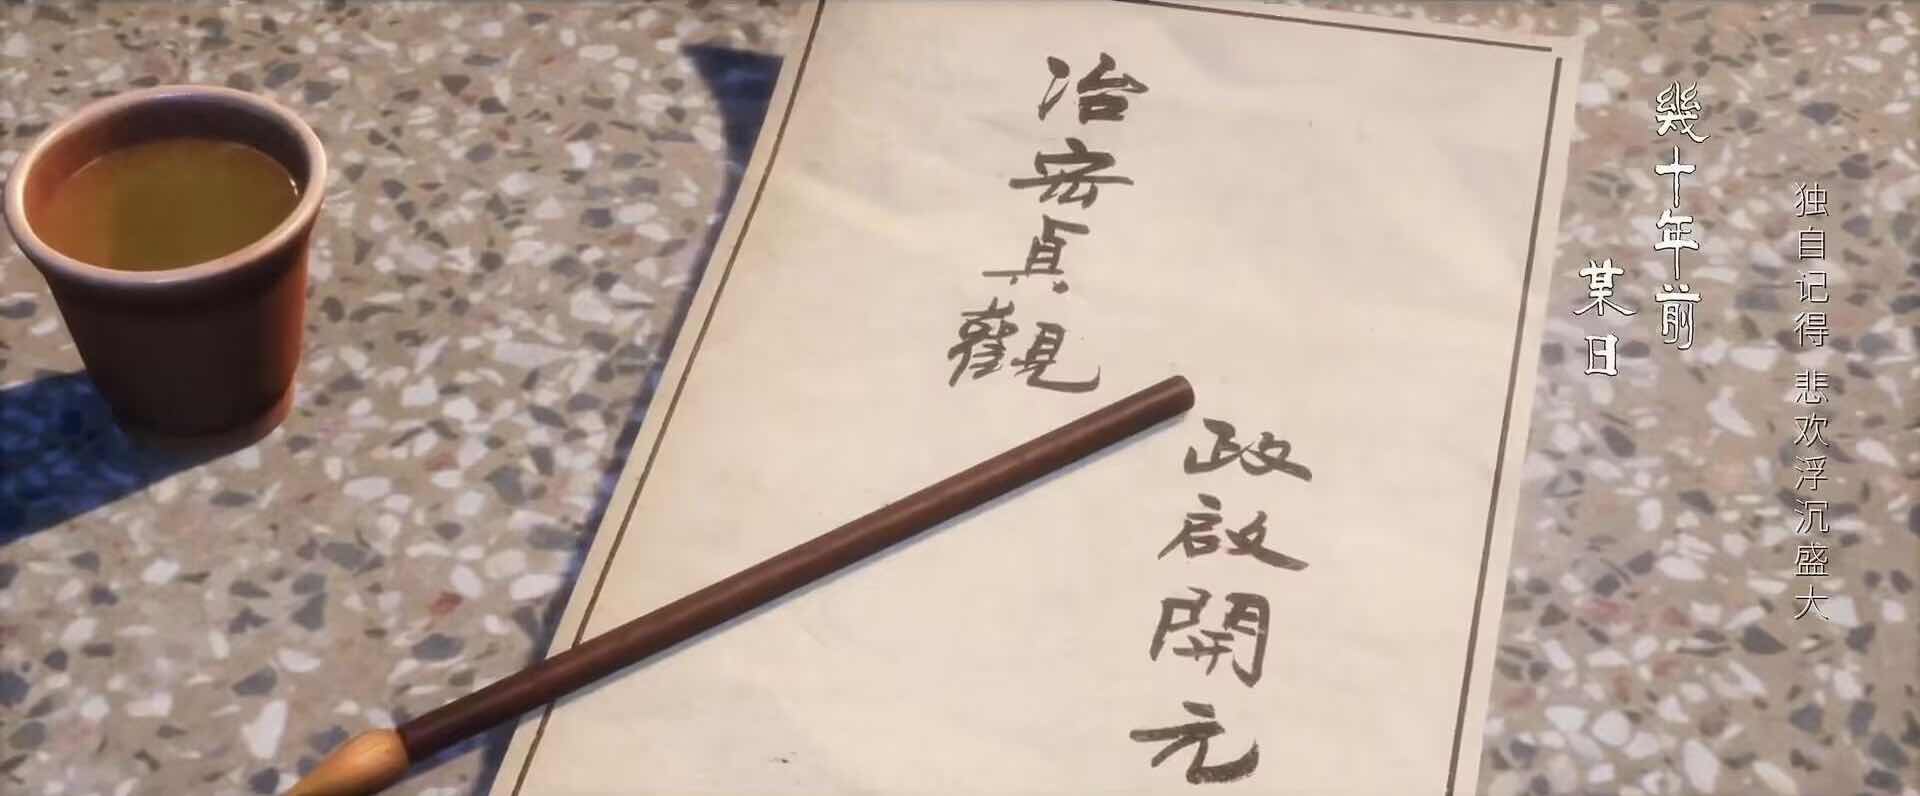 独自记得 悲欢浮沉盛大
幾十年前
某日
政啟開元
治宏貞觀